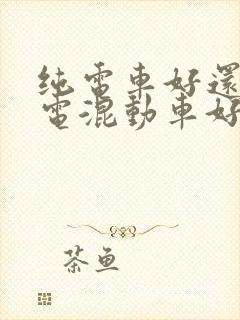 纯電車好還
電混動車好
茶鱼